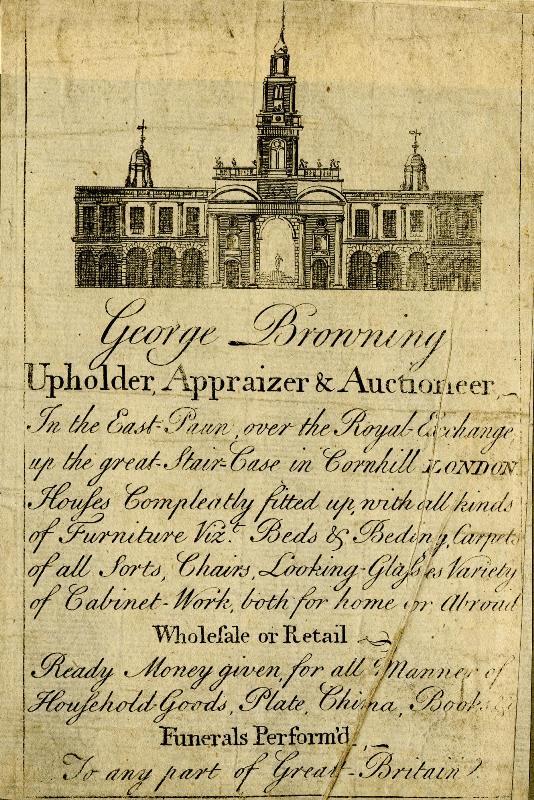 George Browning
Upholder, Appraizer & Auctioneer,
In the East-Paun, over the Royal-Exchange
up the great-Stair-Case in Cornhill LONDON
Houſes Compleatly fitted up, with all kinds
of Furniture Vizt. Beds & Beding, Carpets
of all Sorts, Chairs, Looking-Glaſses Variety
of Cabinet-Work, both for home or Abroad
Wholeſale or Retail
Ready Money given, for all Manner of
Houſehold-Goods, Plate, China, Books &
Funerals Perform'd
To any part of Great-Britain